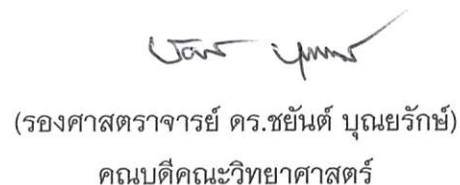 (รองศาสตราจารย์ ดร.ชยันต์ บุณยรักษ์)
คณบดีคณะวิทยาศาสตร์